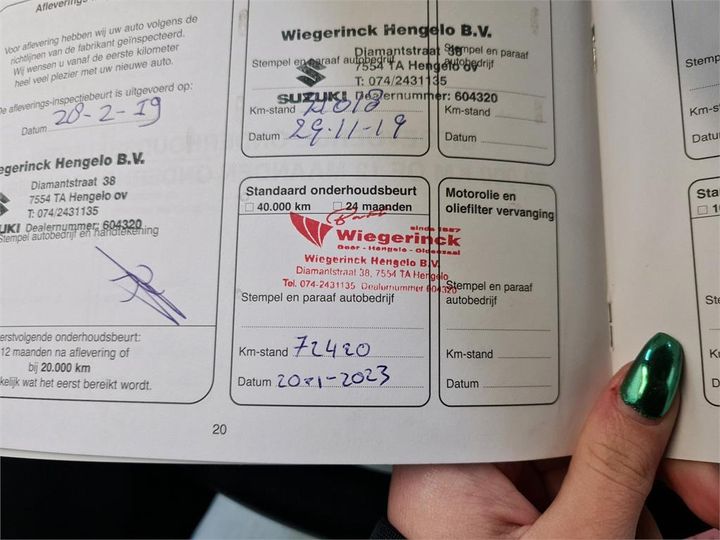 Afleverings
Voor aflevering hebben wij uw auto volgens de
richtlijnen van de fabrikant geïnspecteerd.
Wij wensen u vanaf de eerste kilometer
heel veel plezier met uw nieuwe auto.
De afleverings-inspectiebeurt is uitgevoerd op:
Datum 28-2-19
egerinck Hengelo B.V.
Diamantstraat 38
7554 TA Hengelo ov
T: 074/2431135
UKI Dealernummer: 604320
Stempel autobedrijf en handtekening
erstvolgende onderhoudsbeurt:
12 maanden na aflevering of
bij 20.000 km
kelijk wat het eerst bereikt wordt.
Wiegerinck Hengelo B.V.
Stempel en paraaf autobedrijf
Diamantstraat 38
7554 TA Hengelo ov
T: 074/2431135
SUZUKI Dealernummer: 604320
Km-stand
Datum 29-11-19
Stempel en paraaf
autobedrijf
Km-stand
Datum
Standaard onderhoudsbeurt
40.000 km 24 maanden
sinds 1887
Wiegerinck
Goor - Hengelo - Oldenzaal
Wiegerinck Hengelo B.V.
Diamantstraat 38, 7554 TA Hengelo
Tel. 074-2431135 Dealernummer 604320
Stempel en paraaf autobedrijf
Km-stand 72420
Datum 20-1-2023
Motorolie en
oliefilter vervanging
Stempel en paraaf
autobedrijf
Km-stand
Datum
20
Stemp
Km-st
Datum
Sta
Stemp
Km-
Datu